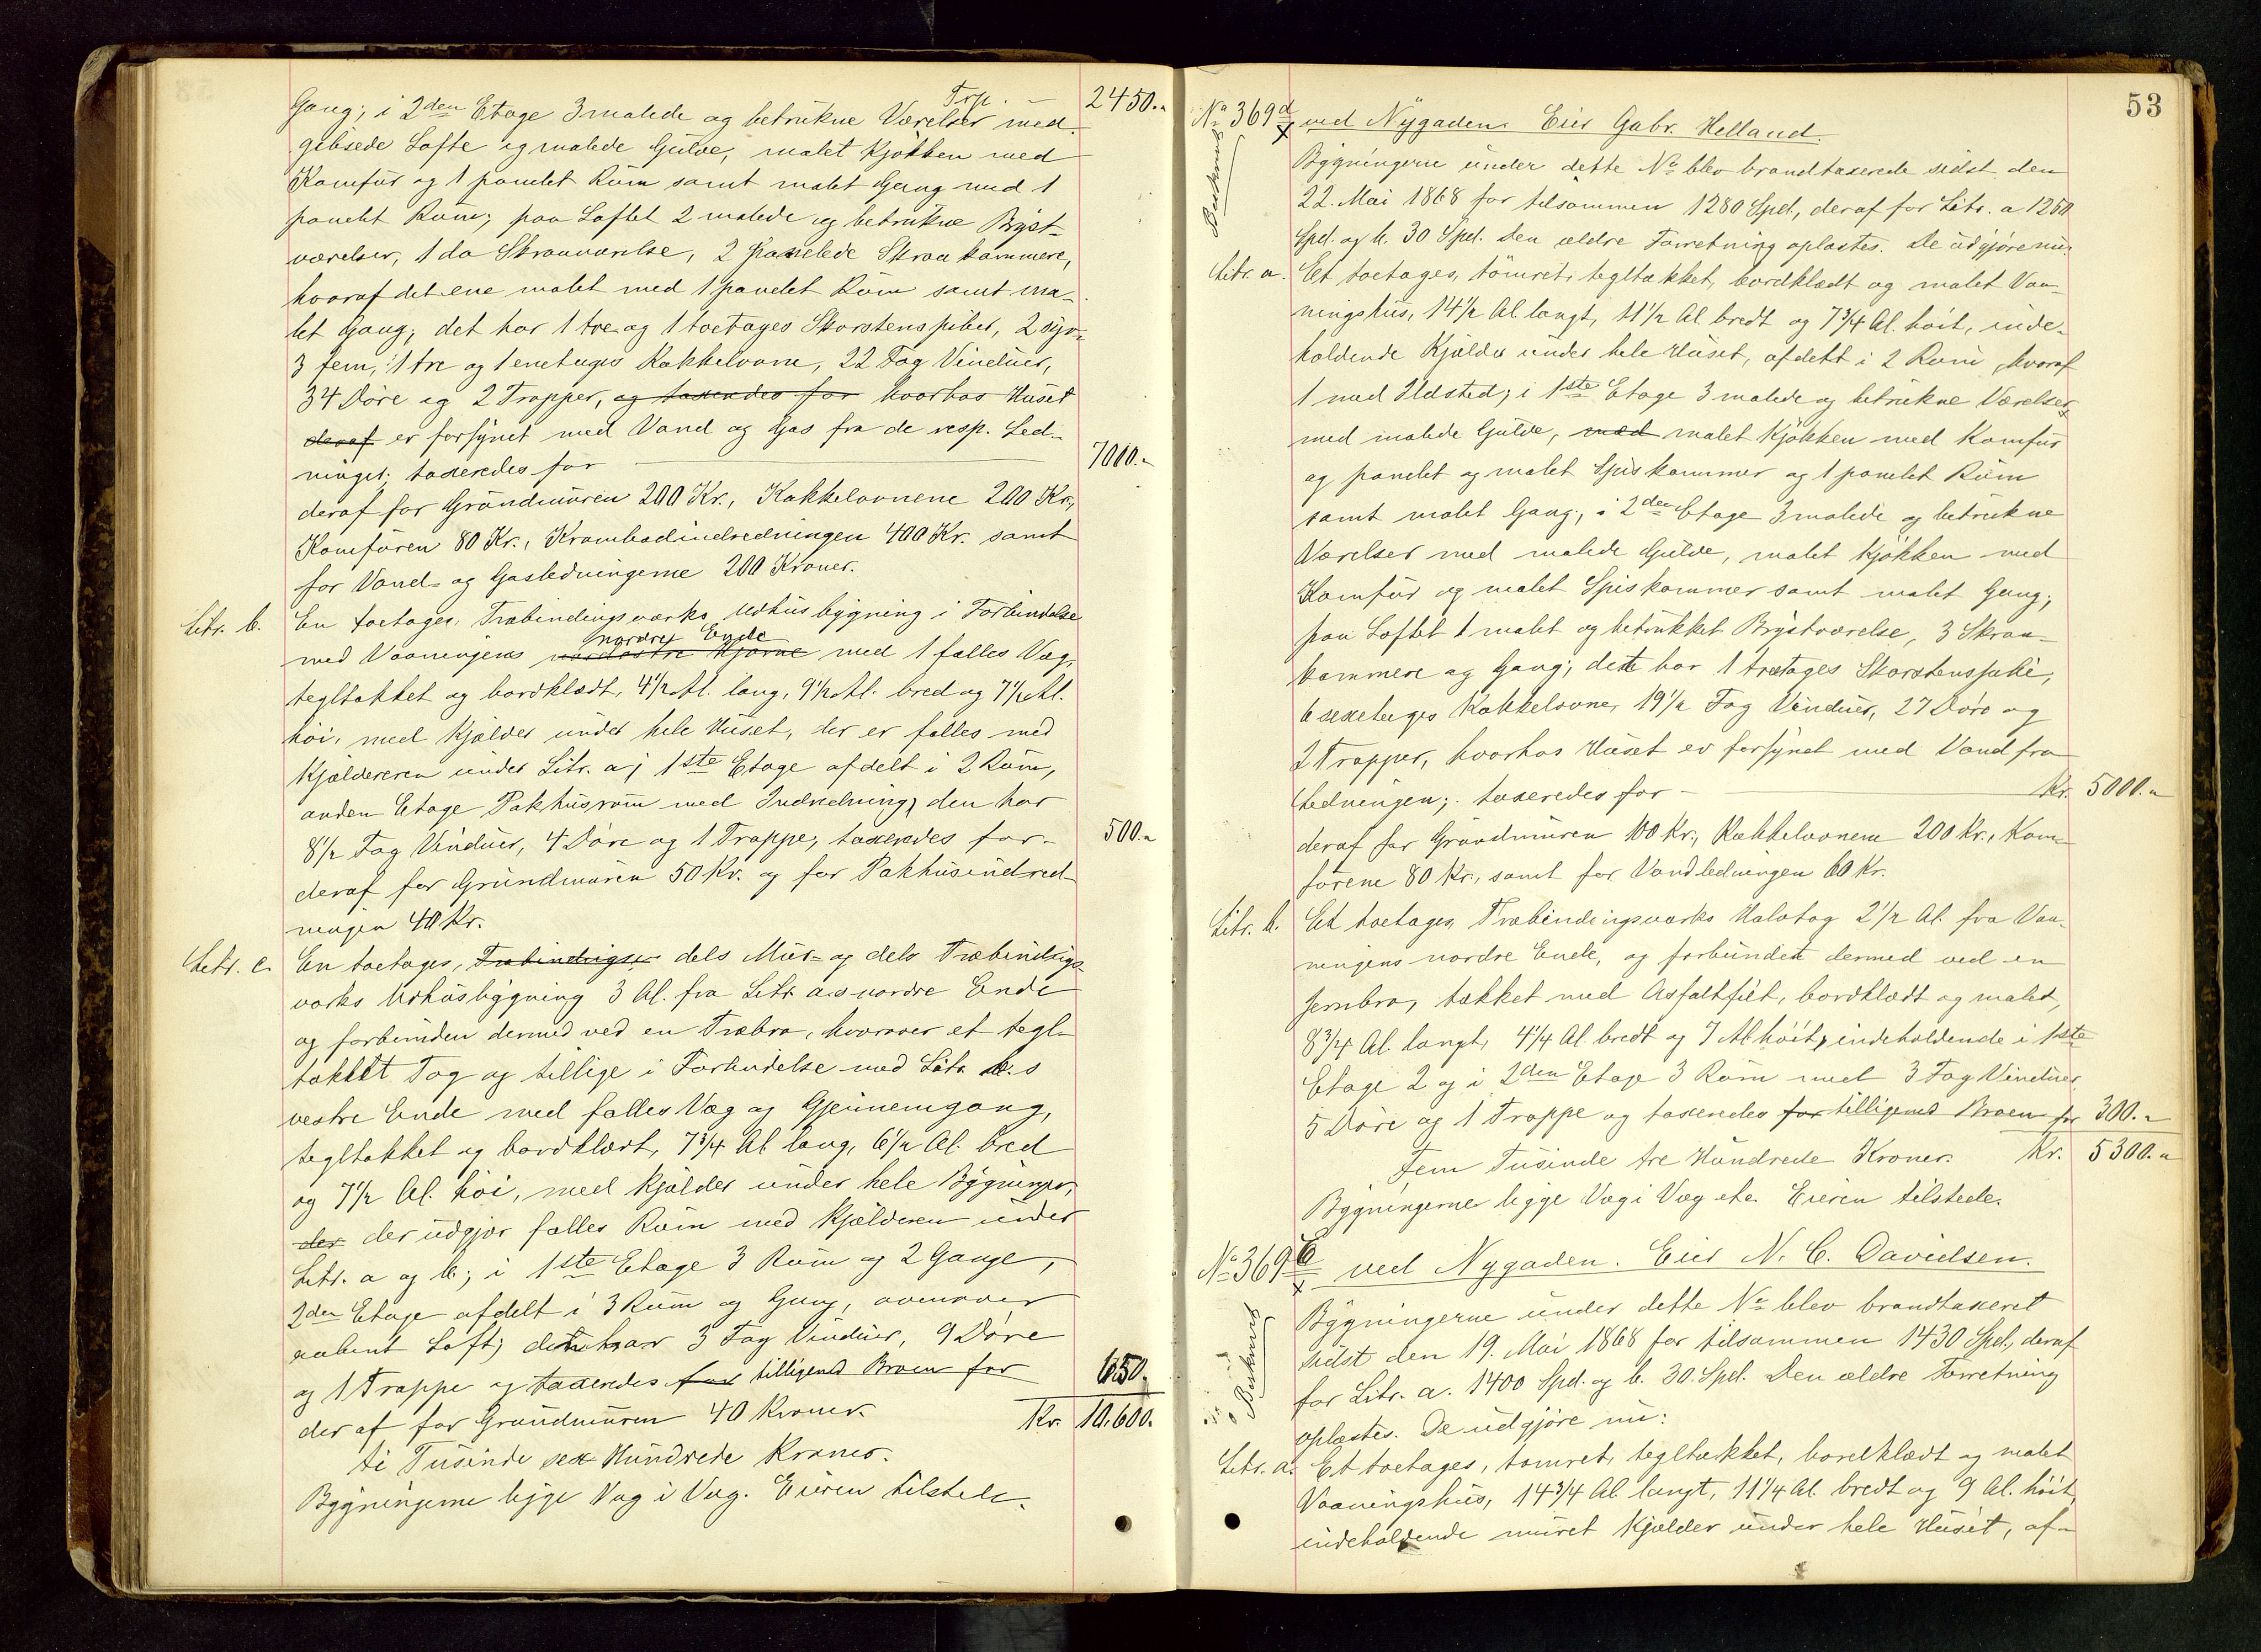 Trp. — 2450.-
Gang; i 2den Etage 3 malede og betrukne Værelser med
gibsede Lofte og malede Gulve, malet Kjøkken med
Komfur og 1 panelet Rum samt malet Gang med 1
panelt Rum; paa Loftet 2 malede og betrukne Bryst-
værelser, 1 do Skraaværelse, 2 panelede Skraakammere,
hvoraf det ene malet med 1 panelet Rum samt ma-
let Gang; det har 1 tre og 1 toetages Skorstenspiber, 2 syv-
3 fem, 1 tre og 1 enetages Kakkelovne, 22 Fag Vinduer,
34 Døre og 2 Trapper, og taxeredes for hvorhos Huset
deraf er forsynet med Vand og Gas fra de resp. Led-
ninger; taxeredes for — 7000.-
deraf for Grundmuren 200 Kr., Kakkelovnene 200 Kr.,
Komfuren 80 Kr., Krambodindredningen 400 Kr. samt
for Vand- og Gasledningerne 200 Kroner.
Litr. b. En toetages, Træbindingsværks Udhusbygning i Forbindelse
nordre Ende
med Vaaningens nordøstre Hjørne med 1 fælles Væg,
tegltækket og bordklædt, 4 1/2 Al. lang, 9 1/2 Al. bred og 7 1/2 Al.
høi, med Kjælder under hele Huset, der er fælles med
Kjælderen under Litr. a; 1ste Etage afdelt i 2 Rum,
anden Etage Pakhusrum med Indredning; den har
8 1/2 Fag Vinduer, 4 Døre og 1 Trappe; taxeredes for - 500.-
deraf for Grundmuren 50 Kr. og for Pakhusindred-
ningen 40 Kr.
Litr. c. En toetages, Træbindings- dels Mur- og dels Træbindings-
værks Udhusbygning 3 Al. fra Litr. a.s nordre Ende
og forbunden dermed ved en Træbro, hvorover et tegl-
tækket Tag og tillige i Forbindelse med Litr. b.s
vestre Ende med fælles Væg og Gjennemgang,
tegltækket og bordklædt, 7 3/4 Al lang, 6 1/2 Al. bred
og 7 1/2 Al. høi, med Kjælder under hele Bygningen,
der der udgjør fælles Rum med Kjælderen under
Litr. a og b; i 1ste Etage 3 Rum og 2 Gange,
2den Etage afdelt i 3 Rum og Gang, ovenover
aabent Loft; den har 3 Fag Vinduer, 9 Døre
og 1 Trappe og taxeredes for tilligemed Broen for 650.
deraf for Grundmuren 40 Kroner. Kr. 10,600.
ti Tusinde sex Hundrede Kroner.
Bygningerne ligge Væg i Væg. Eieren tilstede.
53
No 369 d ved Nygaden. Eier Gabr. Helland.
Bygningerne under dette No blev brandtaxerede sidst den
22. Mai 1868 for tilsammen 1280 Spd., deraf for Litr. a 1250
Spd. og b. 30 Spd. Den ældre Forretning oplæstes. De udgjøre nu:
Litr. a. Et toetages, tømret, tegltækket, bordklædt og malet Vaa-
ningshus, 14 1/2 Al. langt, 11 1/2 Al. bredt og 7 3/4 Al. høit, inde-
holdende Kjælder under hele Huset, afdelt i 2 Rum, hvoraf
1 med Ildsted; i 1ste Etage 3 malede og betrukne Værelser
med malede Gulve, med malet Kjøkken med Komfur
og panelet og malet Spiskammer og 1 panelet Rum
samt malet Gang; i 2den Etage 3 malede og betrukne
Værelser med malede Gulve, malet Kjøkken med
Komfur og malet Spiskammer samt malet Gang;
paa Loftet 1 malet og betrukket Brystværelse, 3 Skraa-
kammere og Gang; det har 1 trætages Skorstenspibe,
6 sexetages Kakkelovne, 19 1/2 Fag Vinduer, 27 Døre og
2 Trapper, hvorhos Huset er forsynet med Vand fra
Ledningen; taxeredes for — Kr. 5000.-
deraf for Grundmuren 100 Kr., Kakkelovnene 200 Kr., Kom-
furene 80 Kr., samt for Vandledningen 60 Kr.
Litr. b. Et toetages, Træbindingsværks Halvtag 2 1/2 Al. fra Vaa-
ningens nordre Ende, og forbundet dermed ved en
Jernbro, tækket med Asfaltfilt, bordklædt og malet,
8 3/4 Al. langt, 4 1/4 Al. bredt og 7 Al høit, indeholdende i 1ste
Etage 2 og i 2den Etage 3 Rum med 3 Fag Vinduer
5 Døre og 1 Trappe og taxeredes for tilligemed Broen for 300.-
Fem Tusinde tre Hundrede Kroner. Kr. 5300.-
Bygningerne ligge Væg i Væg etc. Eieren tilstede.
No 369 e ved Nygaden. Eier N. C. Davidsen.
Bygningerne under dette No blev brandtaxeret
sidst den 19. Mai 1868 for tilsammen 1430 Spd., deraf
for Litr. a. 1400 Spd. og b. 30 Spd. Den ældre Forretning
oplæstes. De udgjøre nu:
Litr. a. Et toetages, tømret, tegltækket, bordklædt og malet
Vaaningshus, 14 3/4 Al. langt, 11 1/4 Al. bredt og 9 Al. høit,
indeholdende muret Kjælder under hele Huset, af-